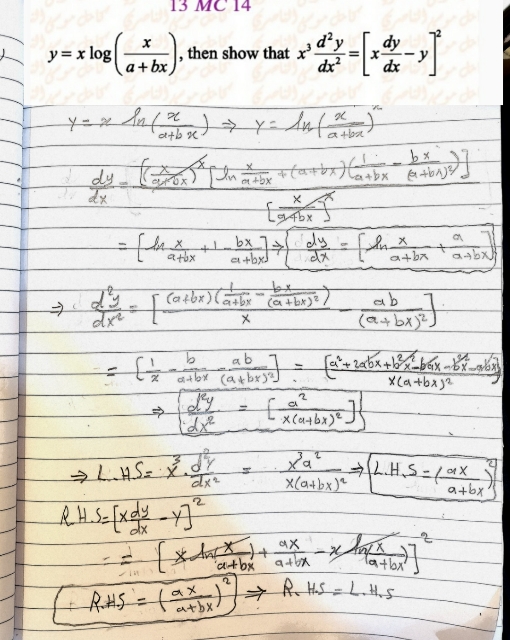 13 MC 14
y = x log(x/(a+bx)), then show that x³ d²y/dx² = [x dy/dx − y]²
y = x ln(x/(a+bx)) ⇒ y = ln(x/(a+bx))^x
dy/dx = [(x/(a+bx))^x [ln x/(a+bx) + (a+bx)(1/(a+bx) − bx/(a+bx)²)]] / [x/(a+bx)]^x
= [ln x/(a+bx) + 1 − bx/(a+bx)] ⇒ dy/dx = [ln x/(a+bx) + a/(a+bx)]
⇒ d²y/dx² = [(a+bx)(1/(a+bx) − bx/(a+bx)²)/x − ab/(a+bx)²]
= [1/x − b/(a+bx) − ab/(a+bx)²] = [a²+2abx+b²x²−bax−b²x²−abx]/x(a+bx)²
⇒ d²y/dx² = [a²/x(a+bx)²]
⇒ L.H.S = x³ d²y/dx² = x³a²/x(a+bx)² ⇒ L.H.S = (ax/(a+bx))²
R.H.S = [x dy/dx − y]²
= [x ln(x/(a+bx)) + ax/(a+bx) − x ln(x/(a+bx))]²
R.H.S = (ax/(a+bx))² ⇒ R.H.S = L.H.S